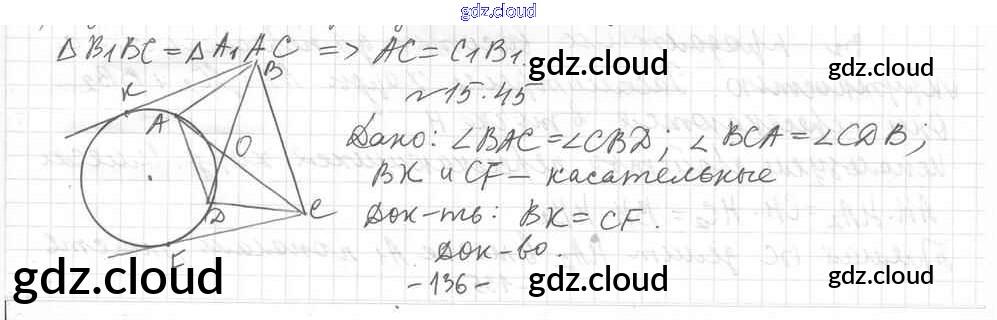 gdz.cloud
△B₁BC = △A₁AC => AC = C₁B₁.
gdz.cloud
gdz.cloud
№15.45
K
B
A
O
D
C
F
Дано: ∠BAC = ∠CBD; ∠BCA = ∠CDB;
BK и CF – касательные
Док-ть: BK = CF.
Док-во.
gdz.cloud
gdz.cloud
gdz.cloud
-136-